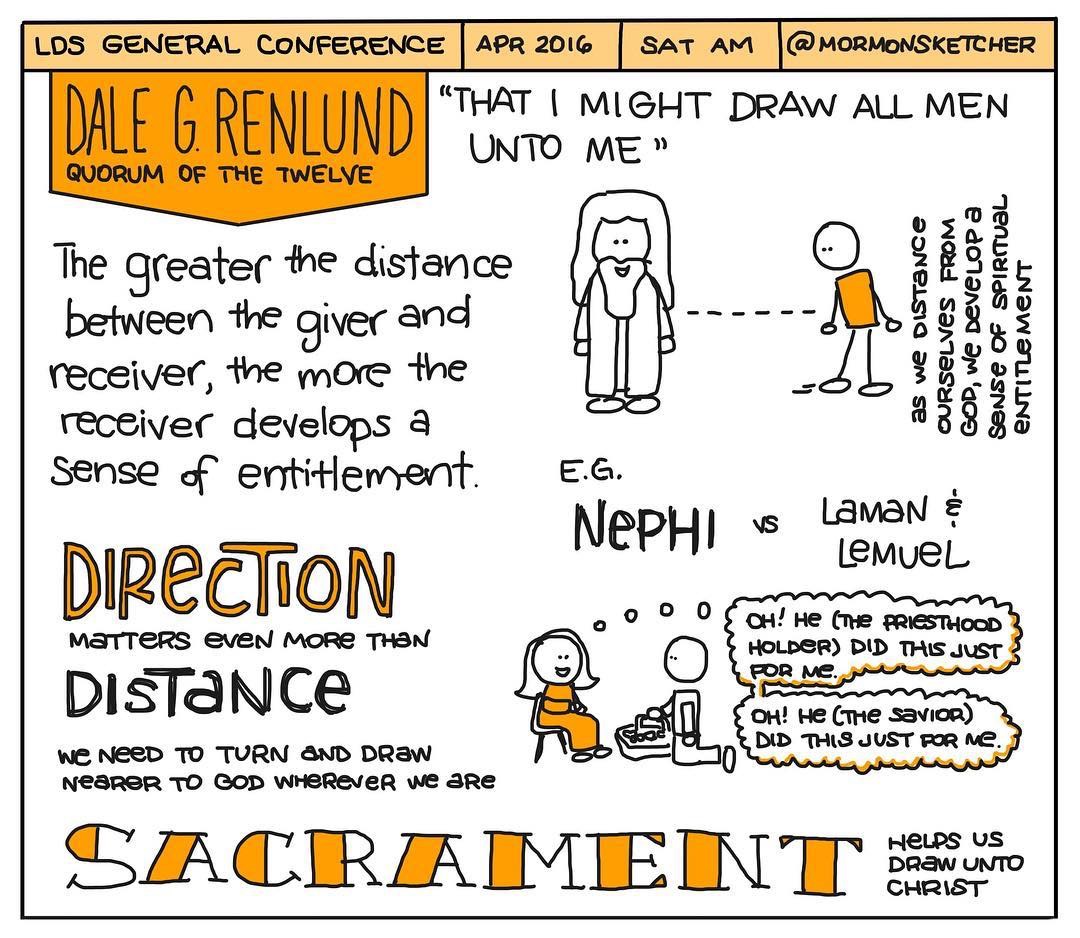 LDS GENERAL CONFERENCE
APR 2016
SAT AM
@MORMONSKETCHER
DALE G. RENLUND
QUORUM OF THE TWELVE
"THAT I MIGHT DRAW ALL MEN
UNTO ME"
The greater the distance
between the giver and
receiver, the more the
receiver develops a
sense of entitlement.
as we DISTANCE
OURSELVES FROM
GOD, we DEVELOP a
SENSE OF SPIRITUAL
ENTITLEMENT
E.G.
NEPHI vs LAMAN &
LEMUEL
DIRECTION
MATTERS EVEN MORE THAN
DISTANCE
WE NEED TO TURN AND DRAW
NEARER TO GOD WHEREVER WE ARE
OH! HE (THE PRIESTHOOD
HOLDER) DID THIS JUST
FOR ME.
OH! HE (THE SAVIOR)
DID THIS JUST FOR ME.
SACRAMENT
HELPS US
DRAW UNTO
CHRIST